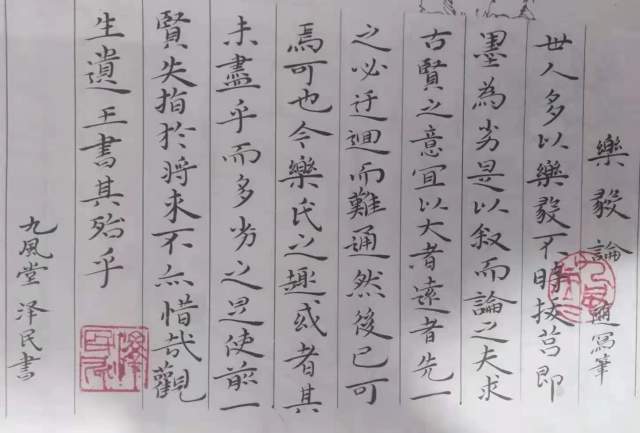 樂毅論 随寫筆
世人多以樂毅不時拔莒即
墨為劣是以叙而論之夫求
古賢之意宜以大者遠者先一
之必迂迴而難通然後已可
焉可也今樂氏之趣或者其
未盡乎而多劣之是使前一
賢失指於将来不亦惜哉觀
生遺王書其殆乎
九風堂 泽民書